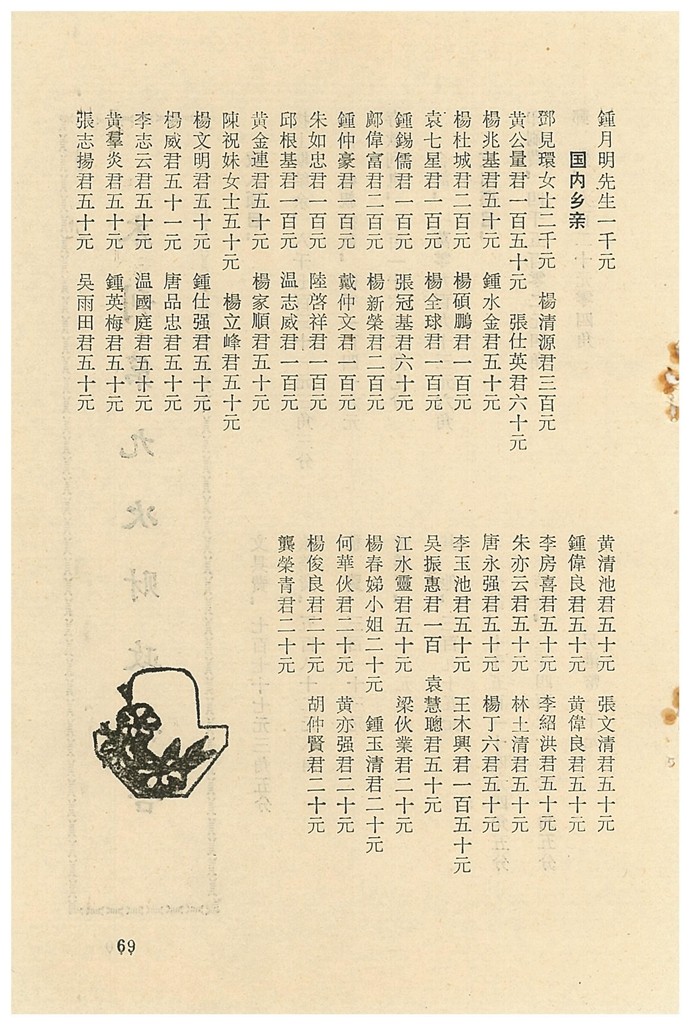 鍾月明先生一千元
国内乡亲
鄧見環女士二千元　楊清源君三百元
黄公量君一百五十元　張仕英君六十元
楊兆基君五十元　鍾水金君五十元
楊杜城君二百元　楊碩鵬君一百元
袁七星君一百元　楊全球君一百元
鍾錫儒君一百元　張冠基君六十元
鄺偉富君二百元　楊新榮君二百元
鍾仲豪君一百元　戴仲文君一百元
朱如忠君一百元　陸啓祥君一百元
邱根基君一百元　温志威君一百元
黄金連君五十元　楊家順君五十元
陳祝妹女士五十元　楊立峰君五十元
楊文明君五十元　鍾仕强君五十元
楊威君五十一元　唐品忠君五十元
李志云君五十元　温國庭君五十元
黄羣炎君五十元　鍾英梅君五十元
張志揚君五十元　吴雨田君五十元
黄清池君五十元　張文清君五十元
鍾偉良君五十元　黄偉良君五十元
李房喜君五十元　李紹洪君五十元
朱亦云君五十元　林土清君五十元
唐永强君五十元　楊丁六君五十元
李玉池君五十元　王木興君一百五十元
吴振惠君一百　袁慧聰君五十元
江水靈君五十元　梁伙業君二十元
楊春娣小姐二十元　鍾玉清君二十元
何華伙君二十元　黄亦强君二十元
楊俊良君二十元　胡仲賢君二十元
龔榮青君二十元
69